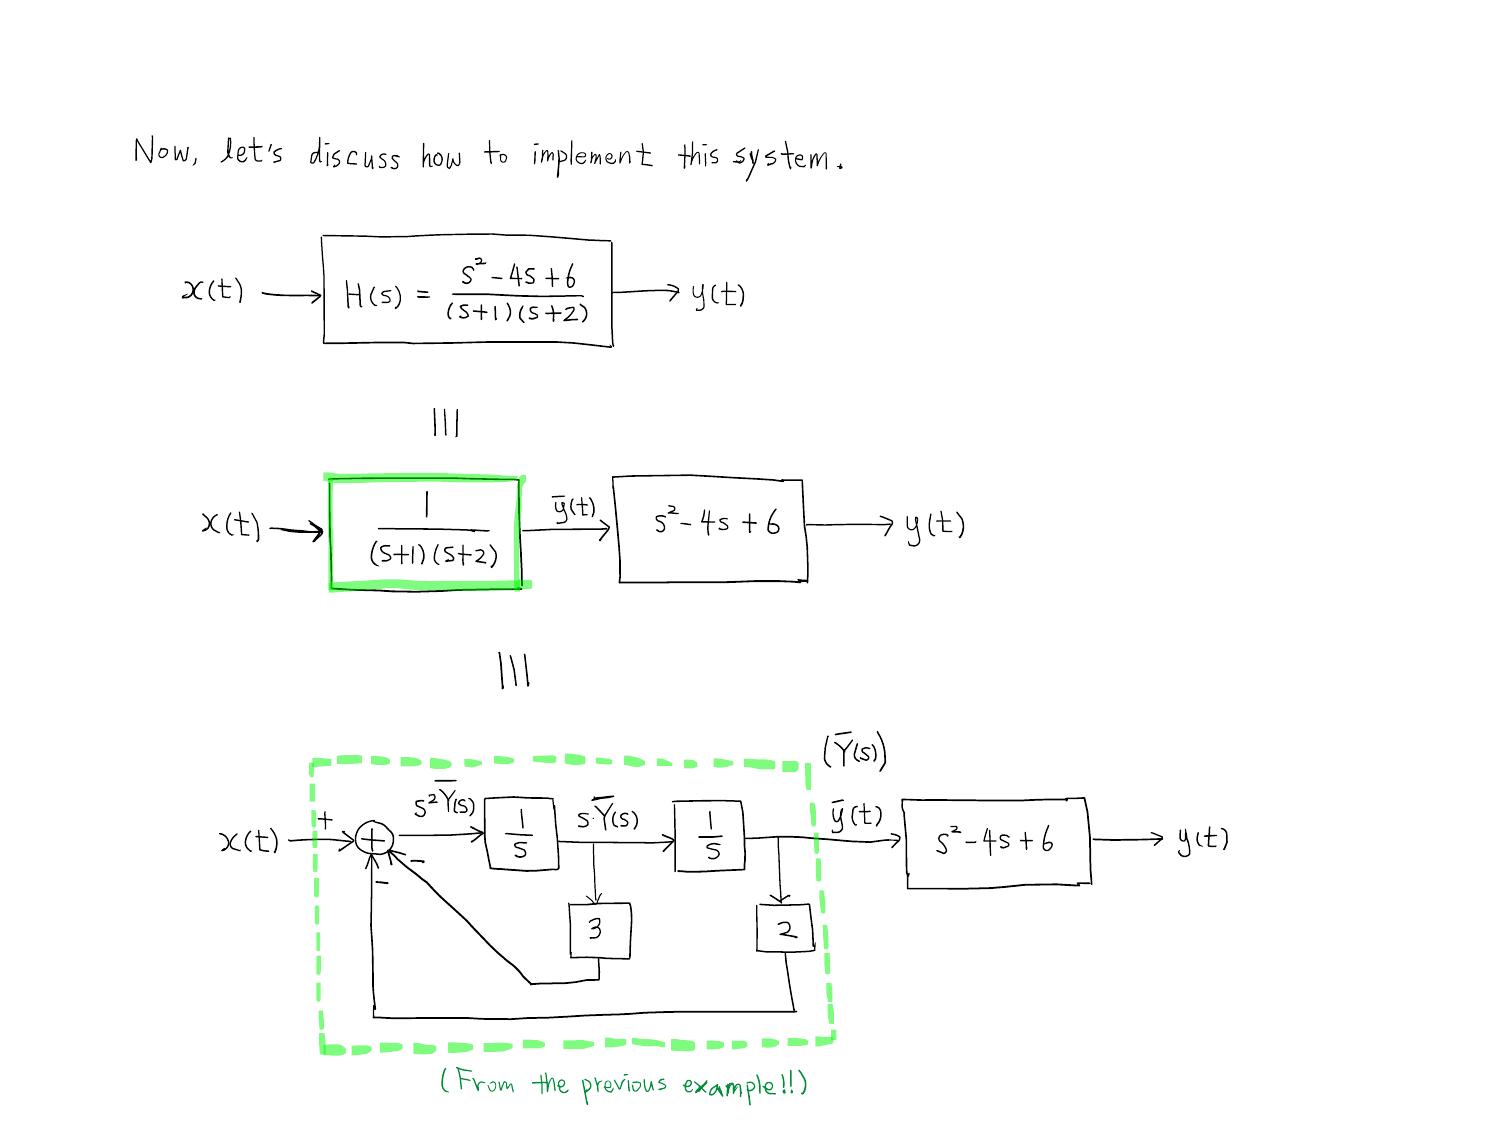 Now, let's discuss how to implement this system.
x(t) → H(s) = (s² - 4s + 6) / ((s+1)(s+2)) → y(t)
|||
x(t) → 1 / ((s+1)(s+2)) → ȳ(t) → s² - 4s + 6 → y(t)
|||
(Ȳ(s))
x(t) + + s²Ȳ(s) 1/s s·Ȳ(s) 1/s ȳ(t) s² - 4s + 6 y(t)
- -
3 2
(From the previous example!!)